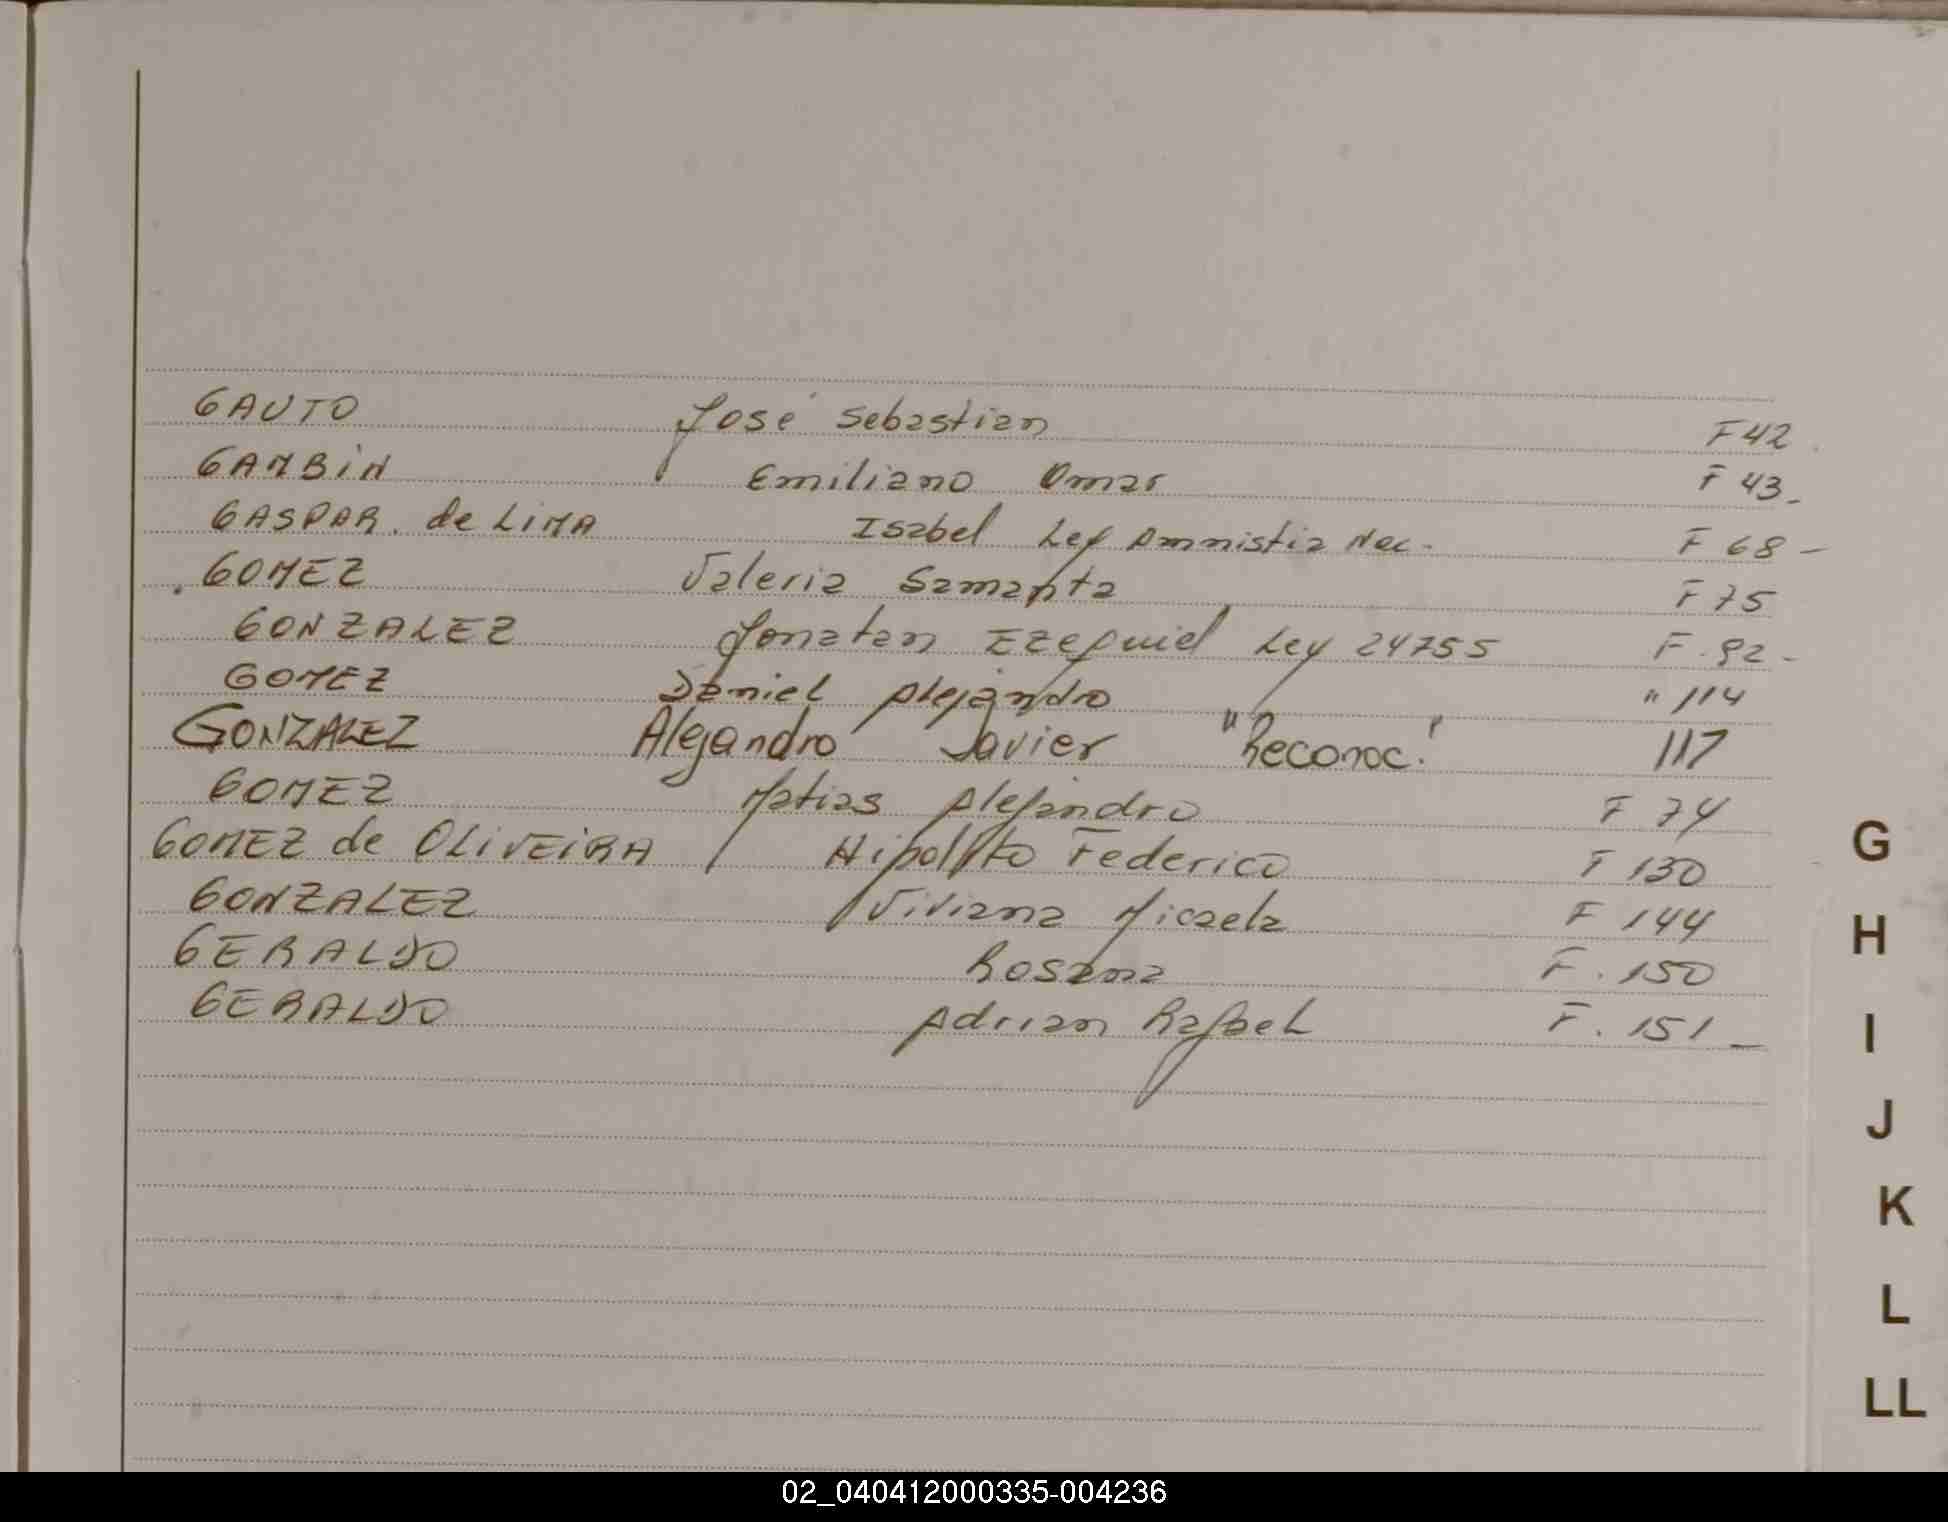 GAUTO José Sebastian F 42
GAMBiN Emiliano Omar F 43_
GASPAR. de LiMA Isabel Ley Amnistia Nac. F 68 -
GOMEZ Valeria Samanta F 75
GONZALEZ Jonatan Ezequiel Ley 24755 F. 92 -
GOMEZ Daniel Alejandro " 114
GONZALEZ Alejandro Javier "Reconoc." 117
GOMEZ Matias Alejandro F 74
GOMEZ de OLiVEiRA Hipolito Federico F 130
GONZALEZ Viviana Micaela F 144
GERALDO Rosana F. 150
GERALDO Adrian Rafael F. 151_
G
H
I
J
K
L
LL
02_040412000335-004236